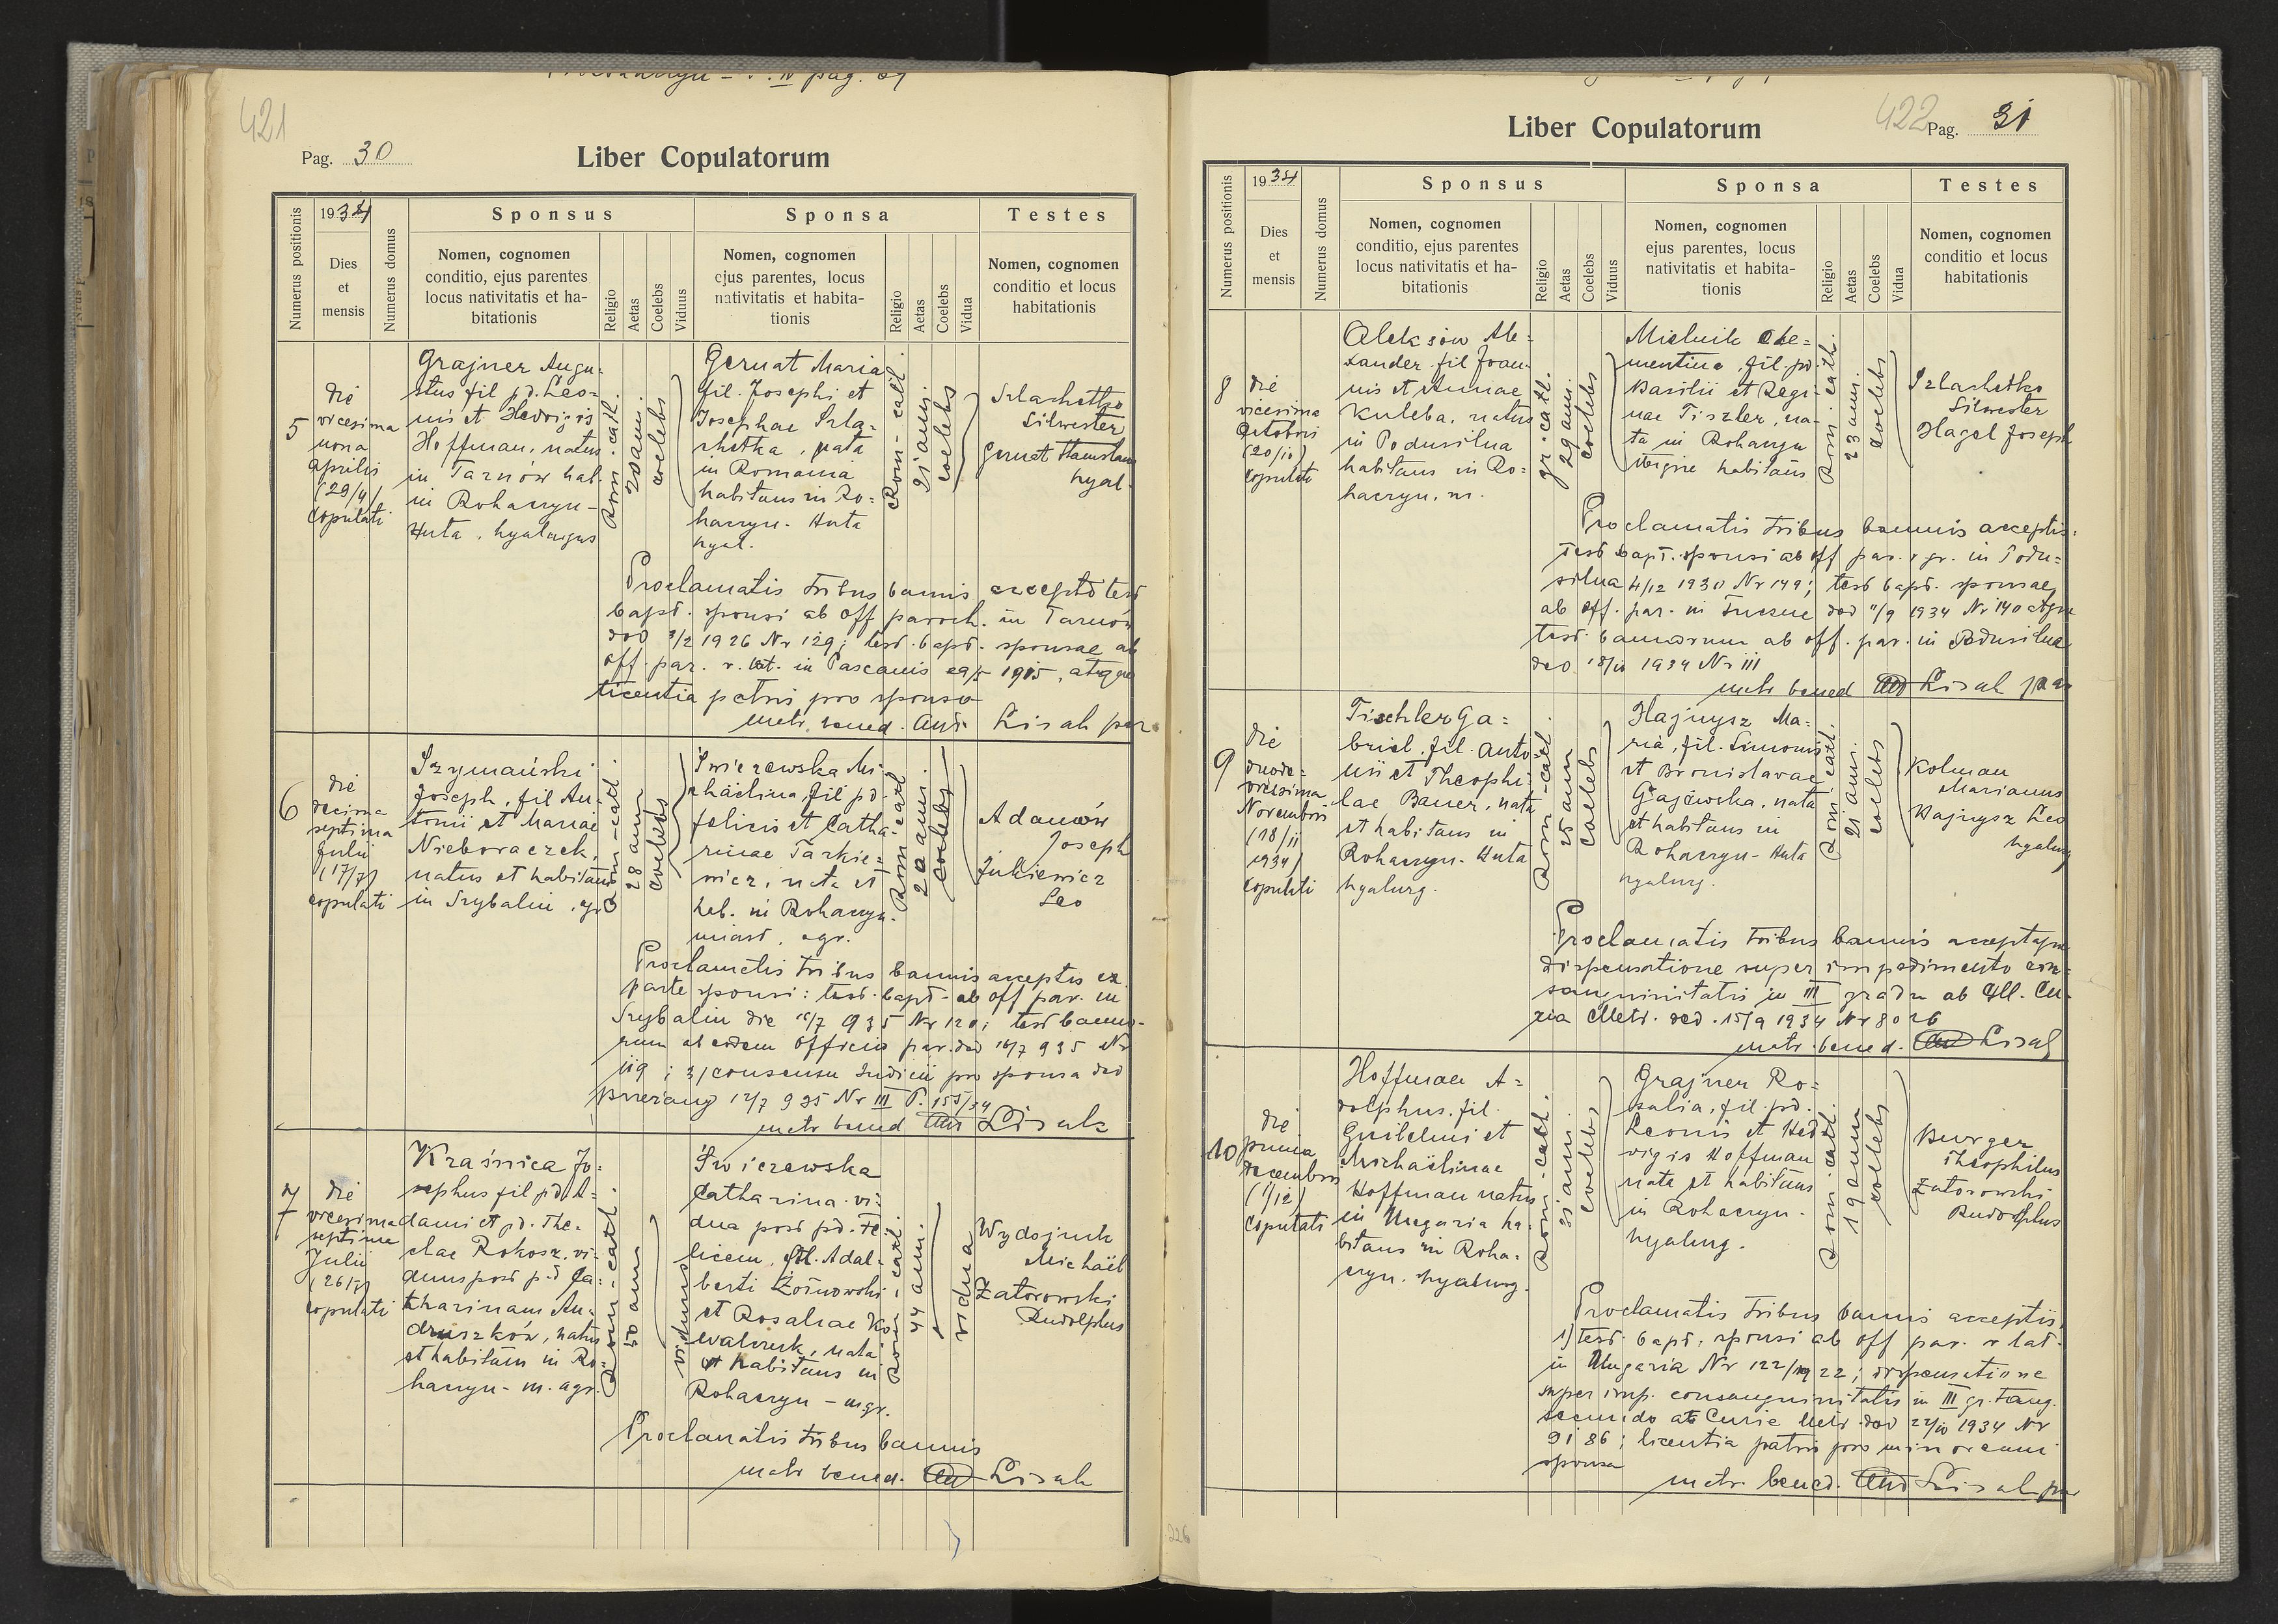 421
Pag. 30
Liber Copulatorum
Numerus positionis
1934
Dies
et
mensis
Numerus domus
Sponsus
Nomen, cognomen
conditio, ejus parentes
locus nativitatis et ha-
bitationis
Religio
Aetas
Coelebs
Viduus
Sponsa
Nomen, cognomen
ejus parentes, locus
nativitatis et habita-
tionis
Religio
Aetas
Coelebs
Vidua
Testes
Nomen, cognomen
conditio et locus
habitationis
5
die
vicesima
nona
aprilis
(29/4)
copulati
Grajner Augu-
stus fil pd. Leo-
nis et Hedvigis
Hoffman, natus
in Tarnów hab.
in Rohaczyn-
Huta, hyalurgus
Rom-cath.
coelebs
Gernat Maria
fil. Josephi et
Josephae Szla-
chetka, nata
in Romania
habitans in Ro=
haczyn. Huta
hyal.
Rom-cath.
21 ann.
coelebs
Szlachetko
Silwester
Gernat
hyal.
Proclamatis tribus bannis accepto test
bapt. sponsi ab off paroch. in Tarnów
ddo 3/2 1926 Nr 129; test. bapt. sponsae ab
off. par. r. lat. in Pascanis 29/5 1915, atque
licentia patris pro sponso
matr. bened. And Lisak par
6
die
decima
septima
Julii
(17/7)
copulati
Szymański
Joseph, fil An-
tonii et Mariae
Nieboraczek,
natus et habitans
in Szybalin, agr
Rom-cath.
28 ann
coelebs
Świerzewska Mi-
chäelina, fil pd.
felicis et Catha-
rinae Tarkie=
wicz, nata et
hab. in Rohaczyn.
miast, agr.
Rom cath
20 ann.
coelebs
Adamów
Joseph
Żukiewicz
Leo
Proclamatis tribus bannis acceptis ex
parte sponsi: test. bapt. ab off par. in
Szybalin die 16/7 935 Nr 120; test banno-
rum ab eodem officio par. ddo 16/7 935 Nr
119; 3/ consensu Judicii pro sponsa ddo
Brzeżany 12/7 935 Nr III P. 155/34
matr bened And Lisak
7
die
vicesima
septima
Julii
(26/7)
copulati
Kraśnica Jo-
sephus fil pd. A-
dami et pd. The-
clae Rokosz. vi-
duus post pd Ca-
tharinam An-
druszków, natus
et habitans in Ro-
haczyn - m. agr.
Rom-cath.
50 ann
viduus
Świerzewska
Catharina. vi-
dua post pd. Fe-
licem, fil. Adal-
berti
et Rosaliae Ko-
walczuk, nata
et habitans in
Rohaczyn - m gr.
Rom-cath.
44 ann.
vidua
Wydojnik
Michäel
Zatorowski
Rudolphus
Proclamatis tribus bannis
matr bened. And Lisak
422
Liber Copulatorum
Pag. 31
Numerus positionis
1934
Dies
et
mensis
Numerus domus
Sponsus
Nomen, cognomen
conditio, ejus parentes
locus nativitatis et ha-
bitationis
Religio
Aetas
Coelebs
Viduus
Sponsa
Nomen, cognomen
ejus parentes, locus
nativitatis et habita-
tionis
Religio
Aetas
Coelebs
Vidua
Testes
Nomen, cognomen
conditio et locus
habitationis
8
die
vicesima
Octobris
(20/10)
copulati
Oleksiow Ale=
xander fil Joan-
nis et Annae
Kuleba, natus
in Podusilna
habitans in Ro=
haczyn. m.
gr. cath.
29 ann.
coelebs
Mielnik Cle=
mentina, fil. pd.
Basilii et Regi-
nae Tiszler, na-
ta in Rohaczyn
habitans
Rom. cath.
23 ann.
coelebs
Szlachetko
Silwester
Hagel Joseph
Proclamatis tribus bannis acceptis:
test bapt. sponsi ab off par. r gr. in Podu=
silna 4/12 1930 Nr 149; test bapt. sponsae
ab off. par. in ddo 11/9 1934 Nr 140 atque
test. bannorum ab off. par. in Podusilna
ddo 18/10 1934 Nr 111
matr bened And Lisak par
9
die
duode-
vicesima
Novembris
(18/11
1934)
copulati
Tischler Ga=
briel. fil. Anto
nii et Theophi-
lae Bauer, nata
et habitans in
Rohaczyn-Huta
hyalurg.
Rom-cath.
25 ann
coelebs
Hajnysz Ma=
ria, fil. Simonis
et Bronislavae
Gajewska, nata
et habitans in
Rohaczyn-Huta
hyalurg.
Rom. cath.
21 ann.
coelebs
Kolman
Marianus
Hajnysz Leo
hyalurg
Proclamatis tribus bannis acceptaque
dispensatione super impedimento con-
sanguinitatis in III gradu ab Ill. Cu-
ria Metr. ddo. 15/9 1934 Nr 8026
matr. bened. And Lisak
10
die
prima
decembris
(1/12)
copulati
Hoffman A=
dolphus. fil.
Guilelmi et
Michäelinae
Hoffman natus
in Ungaria ha-
bitans in Roha-
czyn. hyalurg.
Rom-cath.
21 ann.
coelebs
Grajner Ro=
salia, fil. pd.
Leonis et Hed
vigis Hoffman
nata et habitans
in Rohaczyn-
hyalurg.
Rom-cath.
19 ann
coelebs
Burger
Theophilus
Zatorowski
Rudolphus
Proclamatis tribus bannis acceptis,
1) test. bapt. sponsi ab off par. r lat.
in Ungaria Nr 122/1922; dispensatione
super imp. consanguinitatis in III gr. tang.
secundo ab Curia Metr. ddo 22/10 1934 Nr
9186; licentia patris pro minorenni
sponsa
matr. bened. And Lisak par
226